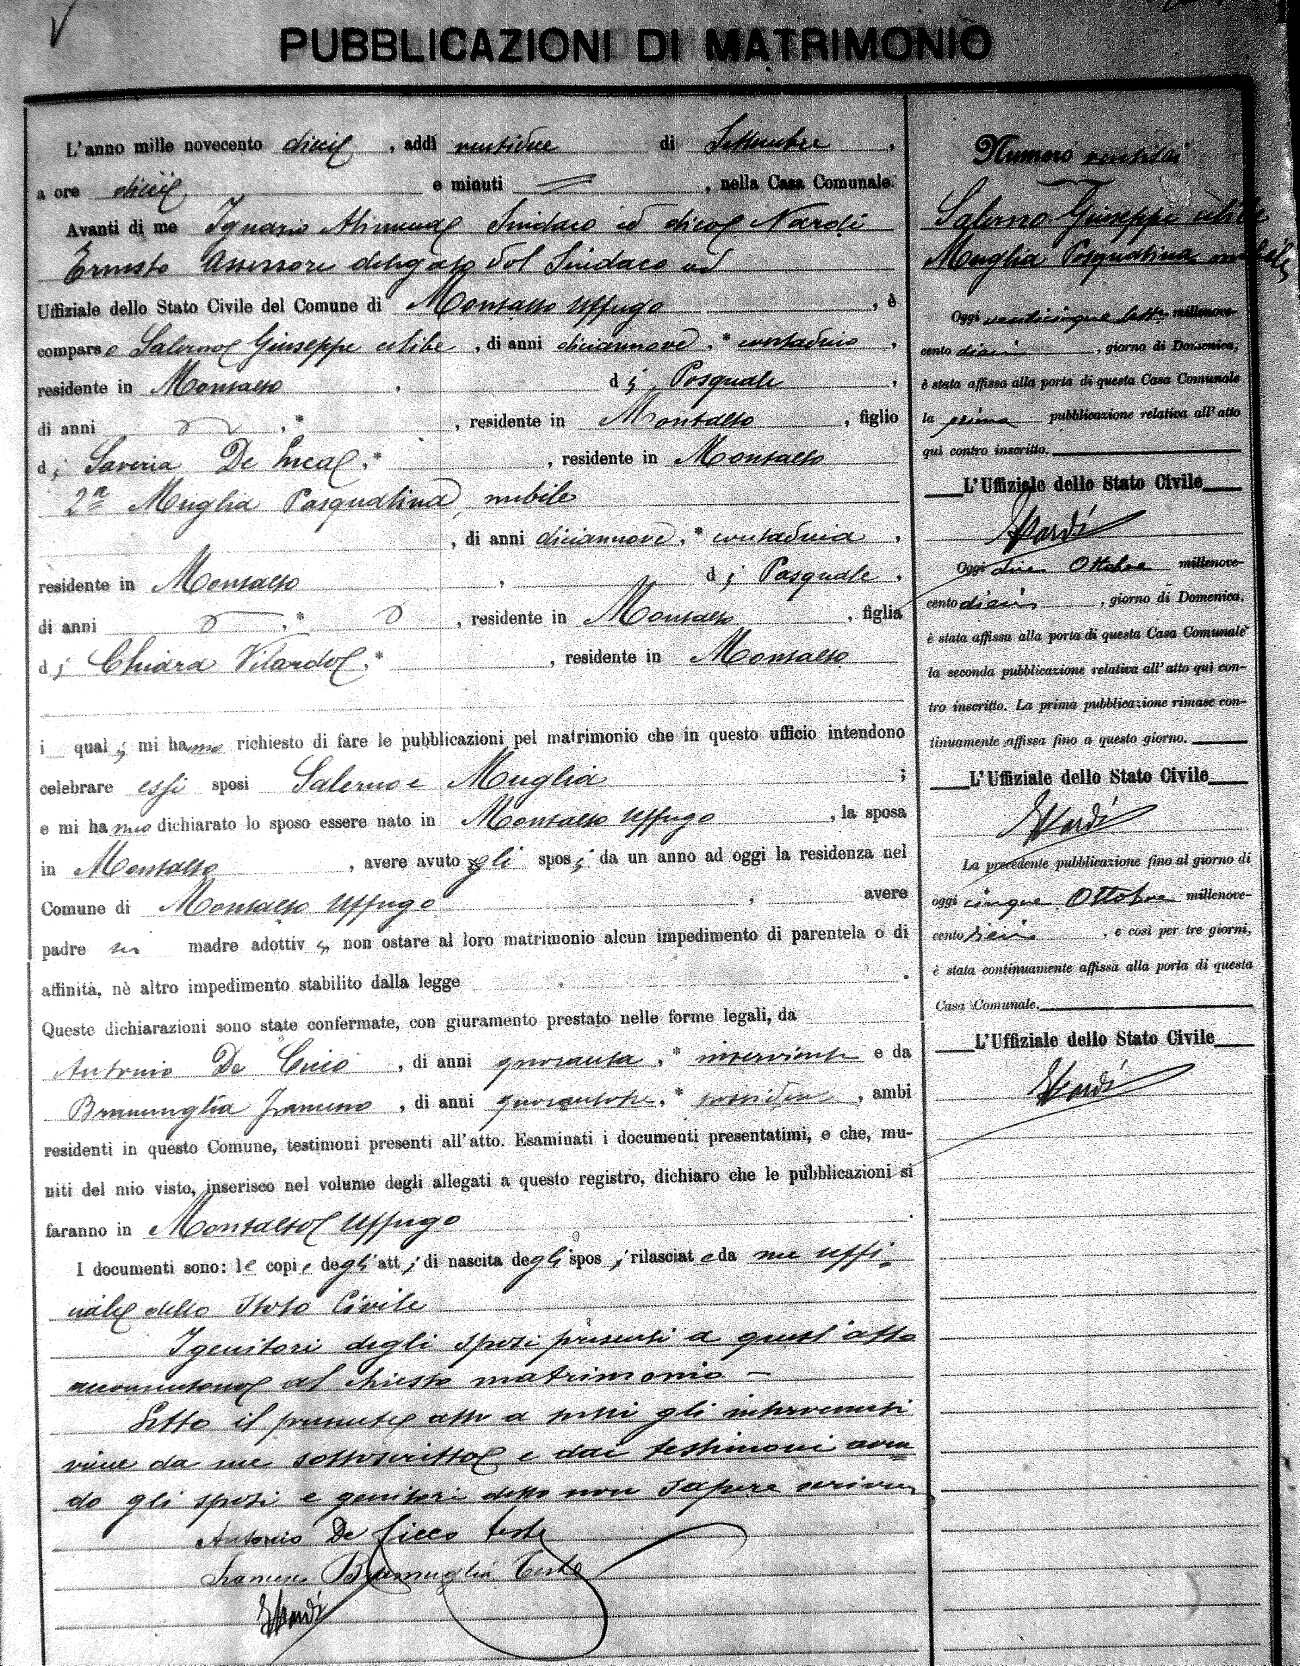 PUBBLICAZIONI DI MATRIMONIO
L'anno mille novecento dieci, addì ventidue di Settembre,
a ore dieci e minuti, nella Casa Comunale.
Avanti di me Ignazio Alimena Sindaco ed dico Nardi
Ernesto Assessore delegato dal Sindaco ad
Uffiziale dello Stato Civile del Comune di Montalto Uffugo, è
comparso Salerno Giuseppe celibe, di anni diciannove, * contadino,
residente in Montalto, di Pasquale,
di anni, * , residente in Montalto, figlio
di Saveria De Luca, * , residente in Montalto
2ª Muglia Pasqualina, nubile
, di anni diciannove, * contadina,
residente in Montalto, di Pasquale,
di anni, * , residente in Montalto, figlia
di Chiara Vilardo, * , residente in Montalto
i quali mi hanno richiesto di fare le pubblicazioni pel matrimonio che in questo ufficio intendono
celebrare essi sposi Salerno e Muglia;
e mi hanno dichiarato lo sposo essere nato in Montalto Uffugo, la sposa
in Montalto, avere avuto gli sposi da un anno ad oggi la residenza nel
Comune di Montalto Uffugo, avere
padre madre adottivi, non ostare al loro matrimonio alcun impedimento di parentela o di
affinità, nè altro impedimento stabilito dalla legge.
Queste dichiarazioni sono state confermate, con giuramento prestato nelle forme legali, da
Antonio De Cicco, di anni quaranta, * inserviente e da
Bramuglia Francesco, di anni, * , ambi
residenti in questo Comune, testimoni presenti all'atto. Esaminati i documenti presentatimi, e che, mu-
niti del mio visto, inserisco nel volume degli allegati a questo registro, dichiaro che le pubblicazioni si
faranno in Montalto Uffugo.
I documenti sono: le copie degli atti di nascita degli sposi, rilasciate da me uffi
ciale dello Stato Civile
I genitori degli sposi presenti a quest'atto
acconsentono al chiesto matrimonio —
Letto il presente atto a tutti gli intervenuti
viene da me sottoscritto e dai testimoni aven
do gli sposi e genitori detto non sapere scrivere
Antonio De Cicco teste
Francesco Bramuglia Teste
ENardi
Numero ventisei
Salerno Giuseppe celibe
Muglia Pasqualina nubile
Oggi venticinque Sette millenove-
cento dieci, giorno di Domenica,
è stata affissa alla porta di questa Casa Comunale
la prima pubblicazione relativa all'atto
qui contro inscritto.
L'Uffiziale dello Stato Civile
ENardi
Oggi due Ottobre millenove-
cento dieci, giorno di Domenica,
è stata affissa alla porta di questa Casa Comunale
la seconda pubblicazione relativa all'atto qui con-
tro inscritto. La prima pubblicazione rimase con-
tinuamente affissa fino a questo giorno.
L'Uffiziale dello Stato Civile
ENardi
La precedente pubblicazione fino al giorno di
oggi cinque Ottobre millenove-
cento dieci, e così per tre giorni,
è stata continuamente affissa alla porta di questa
Casa Comunale.
L'Uffiziale dello Stato Civile
ENardi